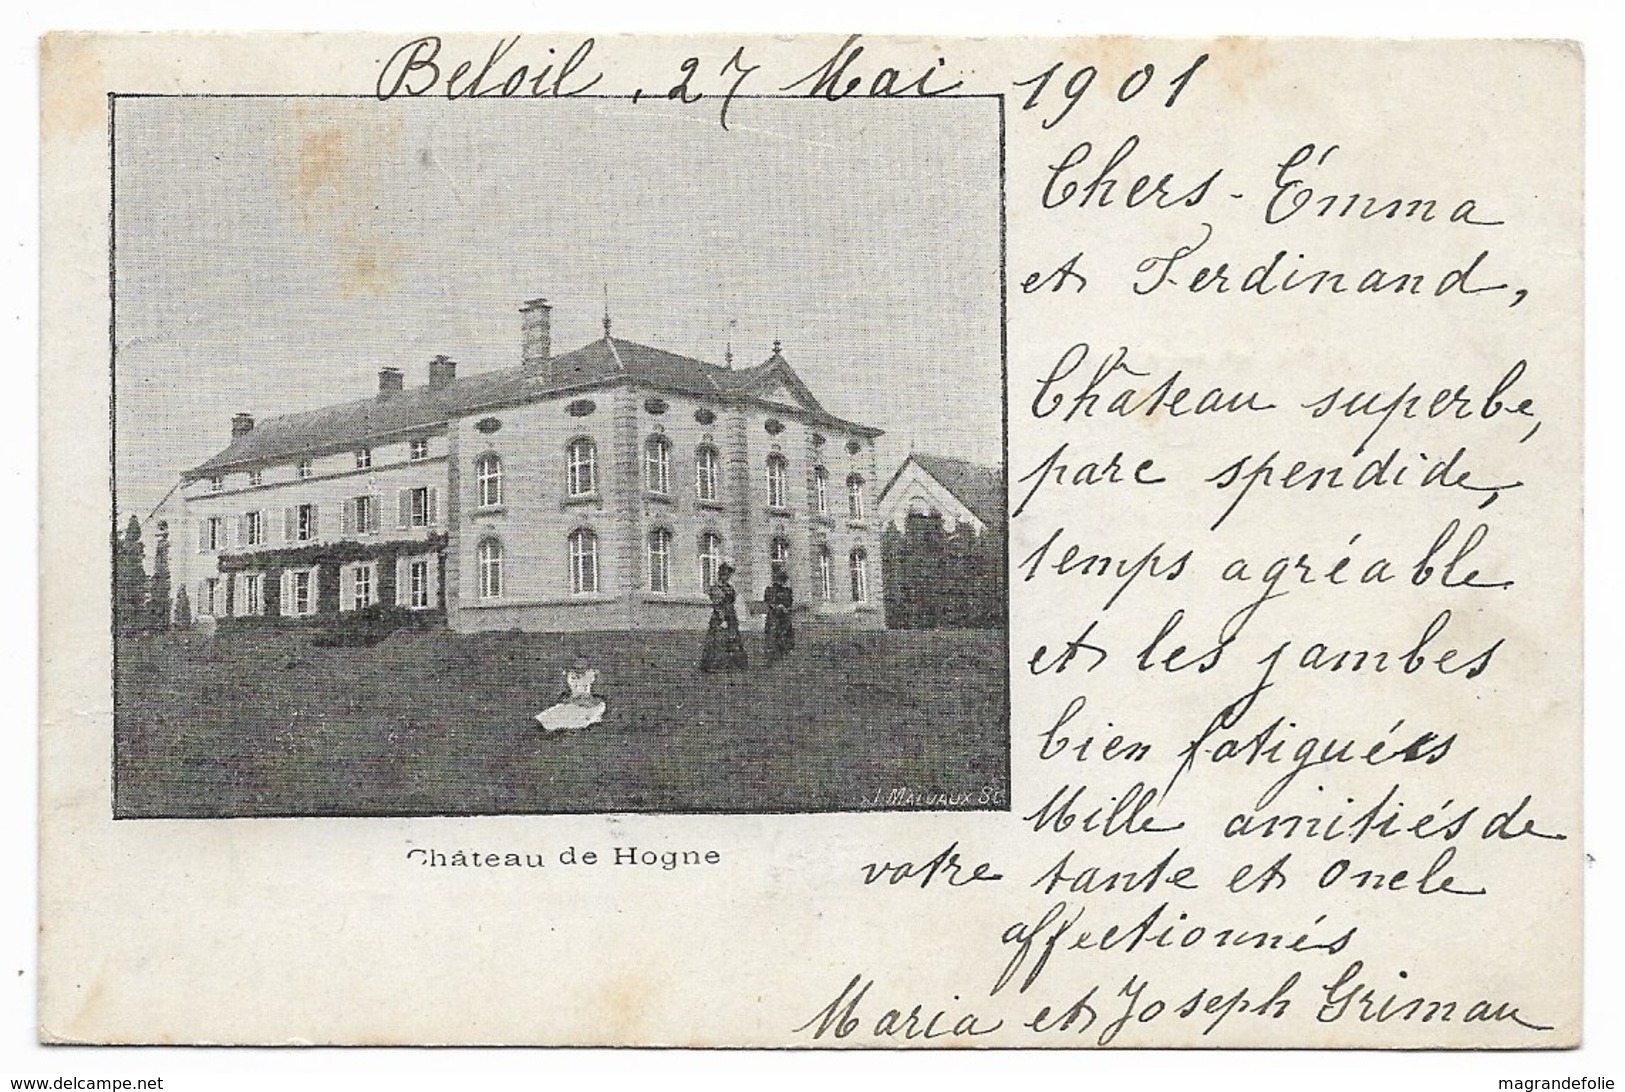 Beloil, 27 Mai 1901
Chers Émma
et Ferdinand,
Château superbe,
parc spendide,
temps agréable
et les jambes
bien fatiguées
Mille amitiés de
votre tante et Oncle
affectionnés
Maria et Joseph Grimau
J. MALVAUX SC
Château de Hogne
www.delcampe.net
magrandefolie